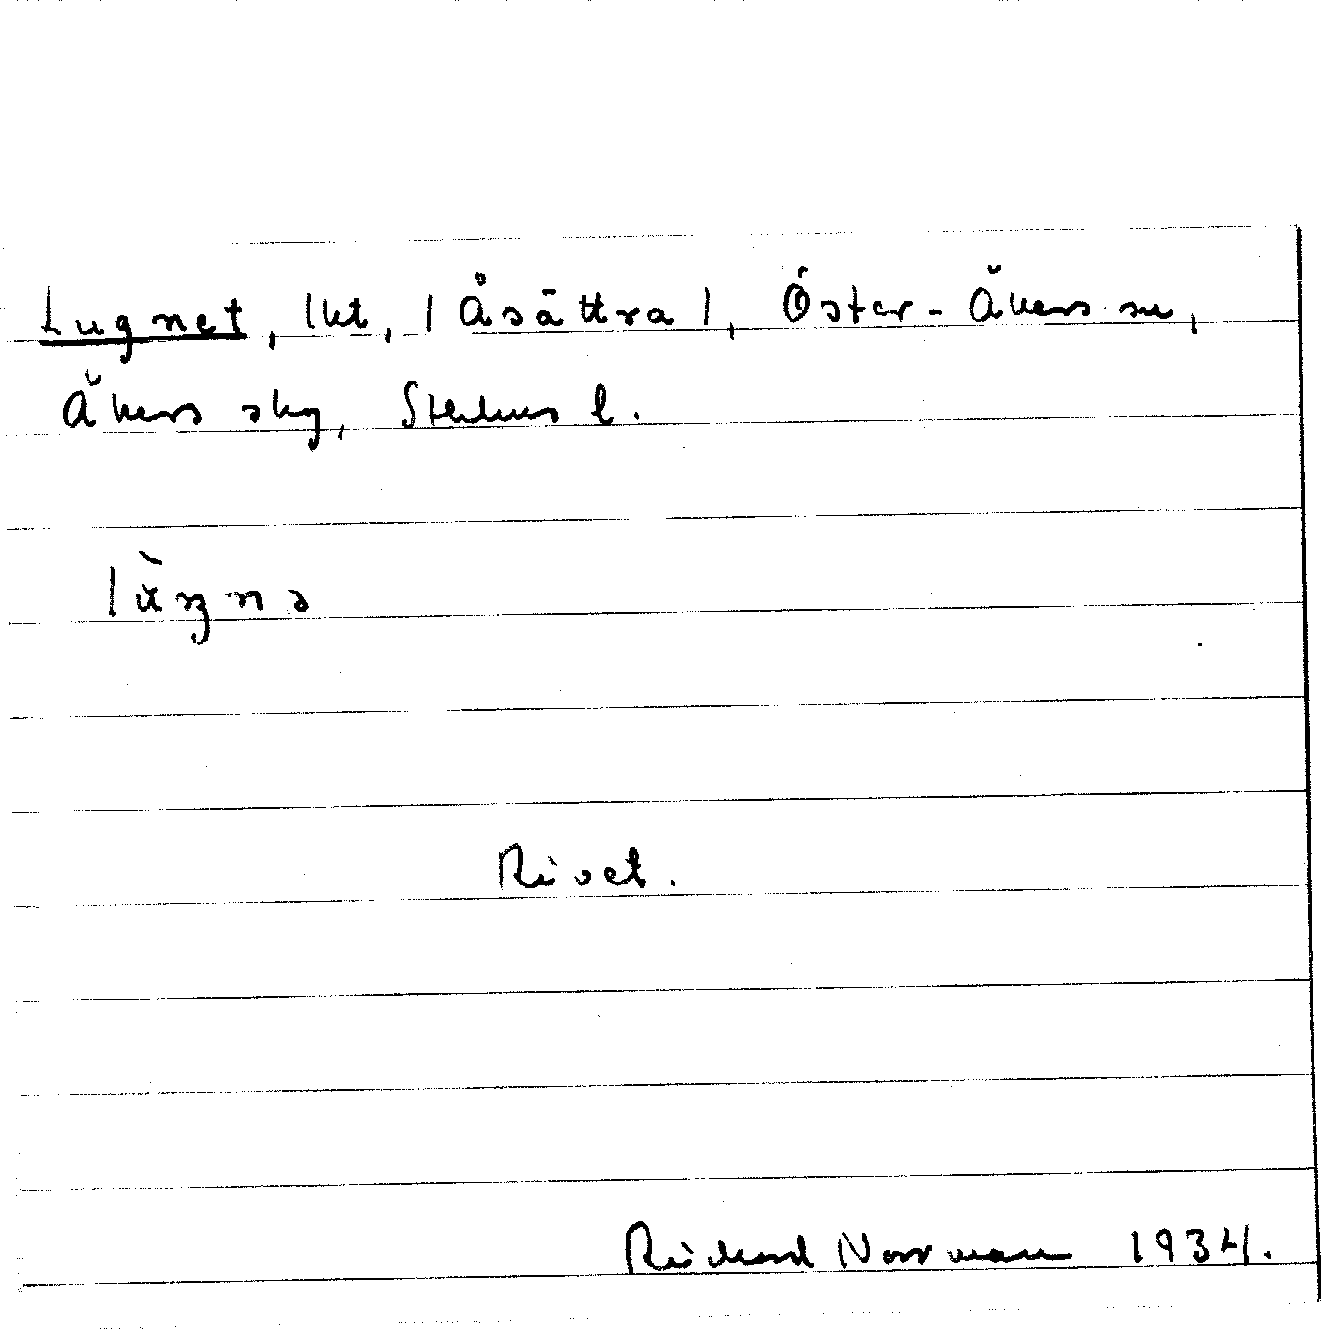 Lugnet, lht, /Åsättra/, Öster-Åkers sn,
Åkers skg, Sthlms l.
lùŋnə
Rivet.
Richard Norrman 1934.